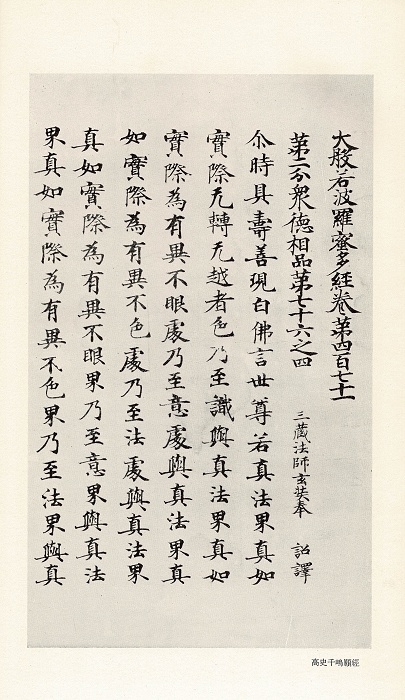 大般若波羅蜜多經卷第四百七十一
第二分衆德相品第七十六之四
三藏法師玄奘奉 詔譯
尒時具壽善現白佛言世尊若真法界真如
實際无轉无越者色乃至識與真法界真如
實際為有異不眼處乃至意處與真法界真
如實際為有異不色處乃至法處與真法界
真如實際為有異不眼界乃至意界與真法
界真如實際為有異不色界乃至法界與真
高史千鳴願經